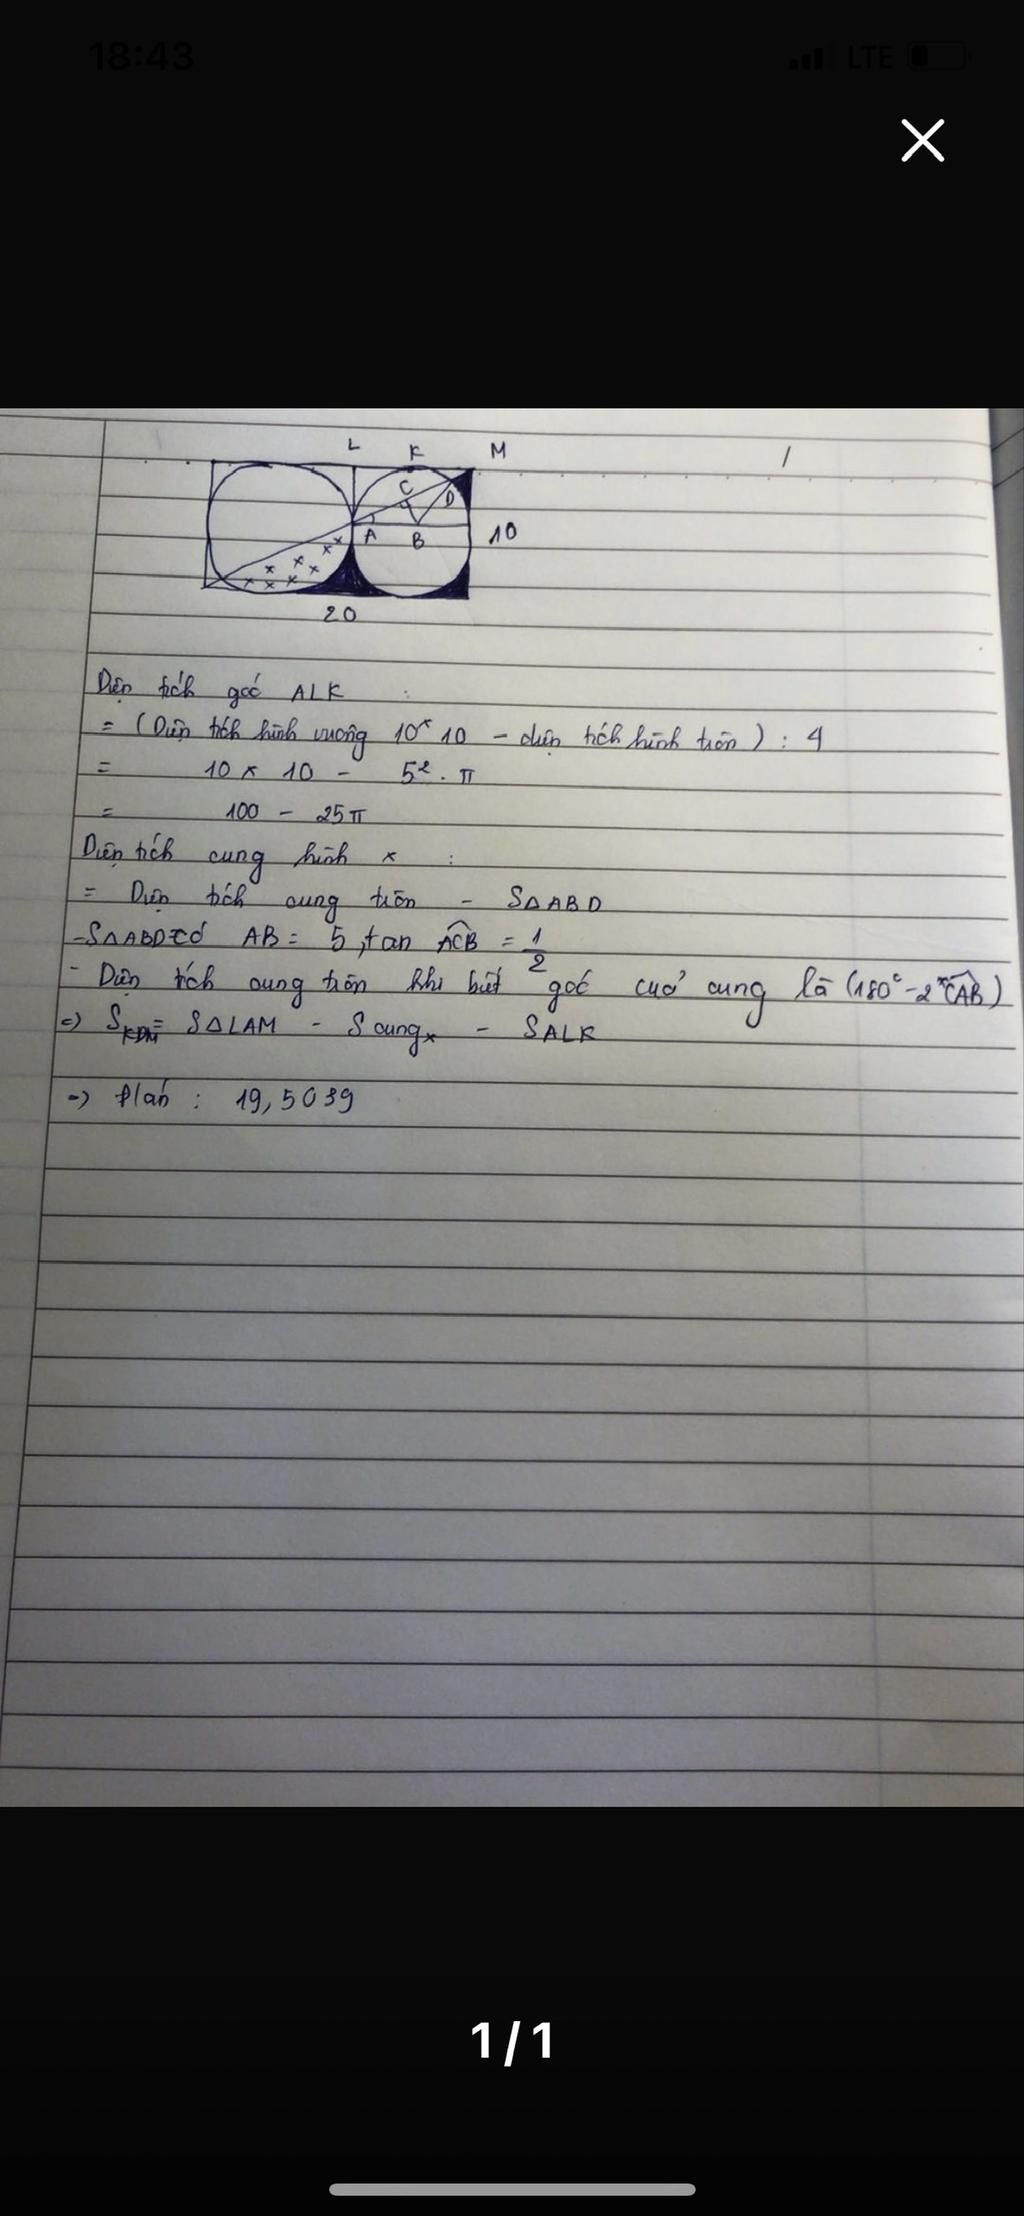 18:43
LTE
L K M
C D
A B 10
20
Diện tích góc ALK :
= (Diện tích hình vuông 10 x 10 - diện tích hình tròn) : 4
= 10 x 10 - 5². π
= 100 - 25π
Diện tích cung hình x :
= Diện tích cung tròn - S∆ABD
- S∆ABD có AB = 5, tan ACB = 1/2
- Diện tích cung tròn khi biết góc cuả cung là (180° - 2*CAB)
=> SKDM = S∆LAM - S cung x - SALK
=> Đáp : 19,5039
1/1